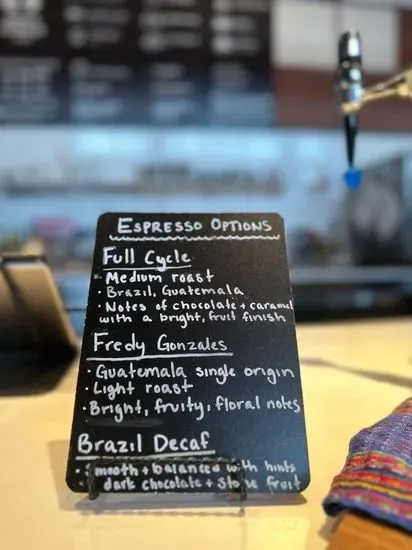 ESPRESSO OPTIONS
Full Cycle
• Medium roast
• Brazil, Guatemala
• Notes of chocolate + caramel
with a bright, fruit finish
Fredy Gonzales
• Guatemala single origin
• Light roast
• Bright, fruity, floral notes
Brazil Decaf
• smooth + balanced with hints
dark chocolate + stone fruit